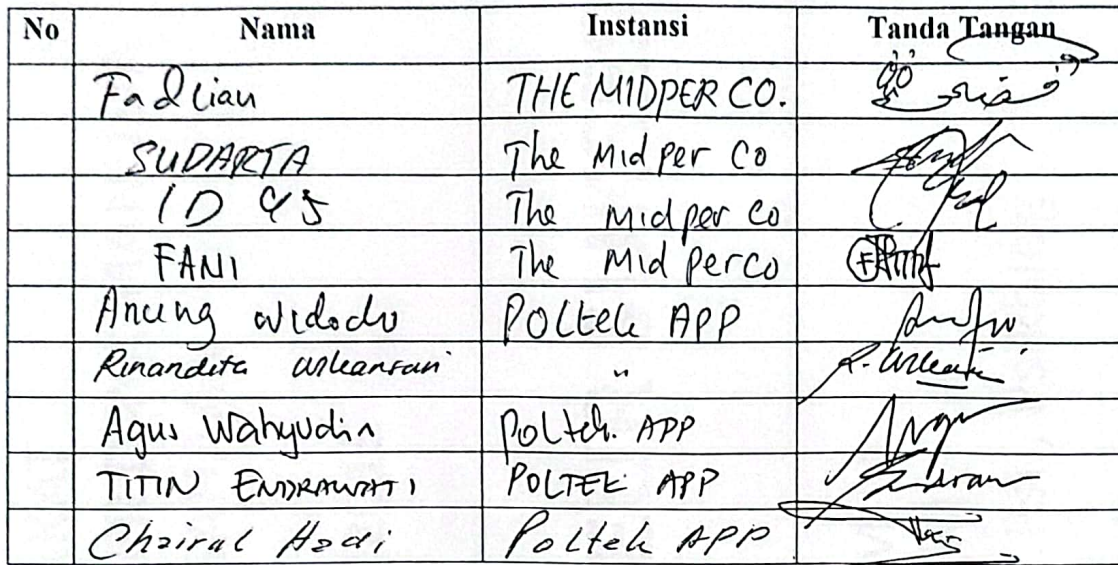 No Nama Instansi Tanda Tangan
Fadlian THE MIDPER CO.
SUDARTA The Midper Co
The midper co
FANI The Midperco FANI
Anung widodo Poltek APP
Rinandita wikansari "
Agus Wahyudin Poltek. APP
TITIN ENDRAWATI POLTEK APP
Chairul Hadi Poltek APP